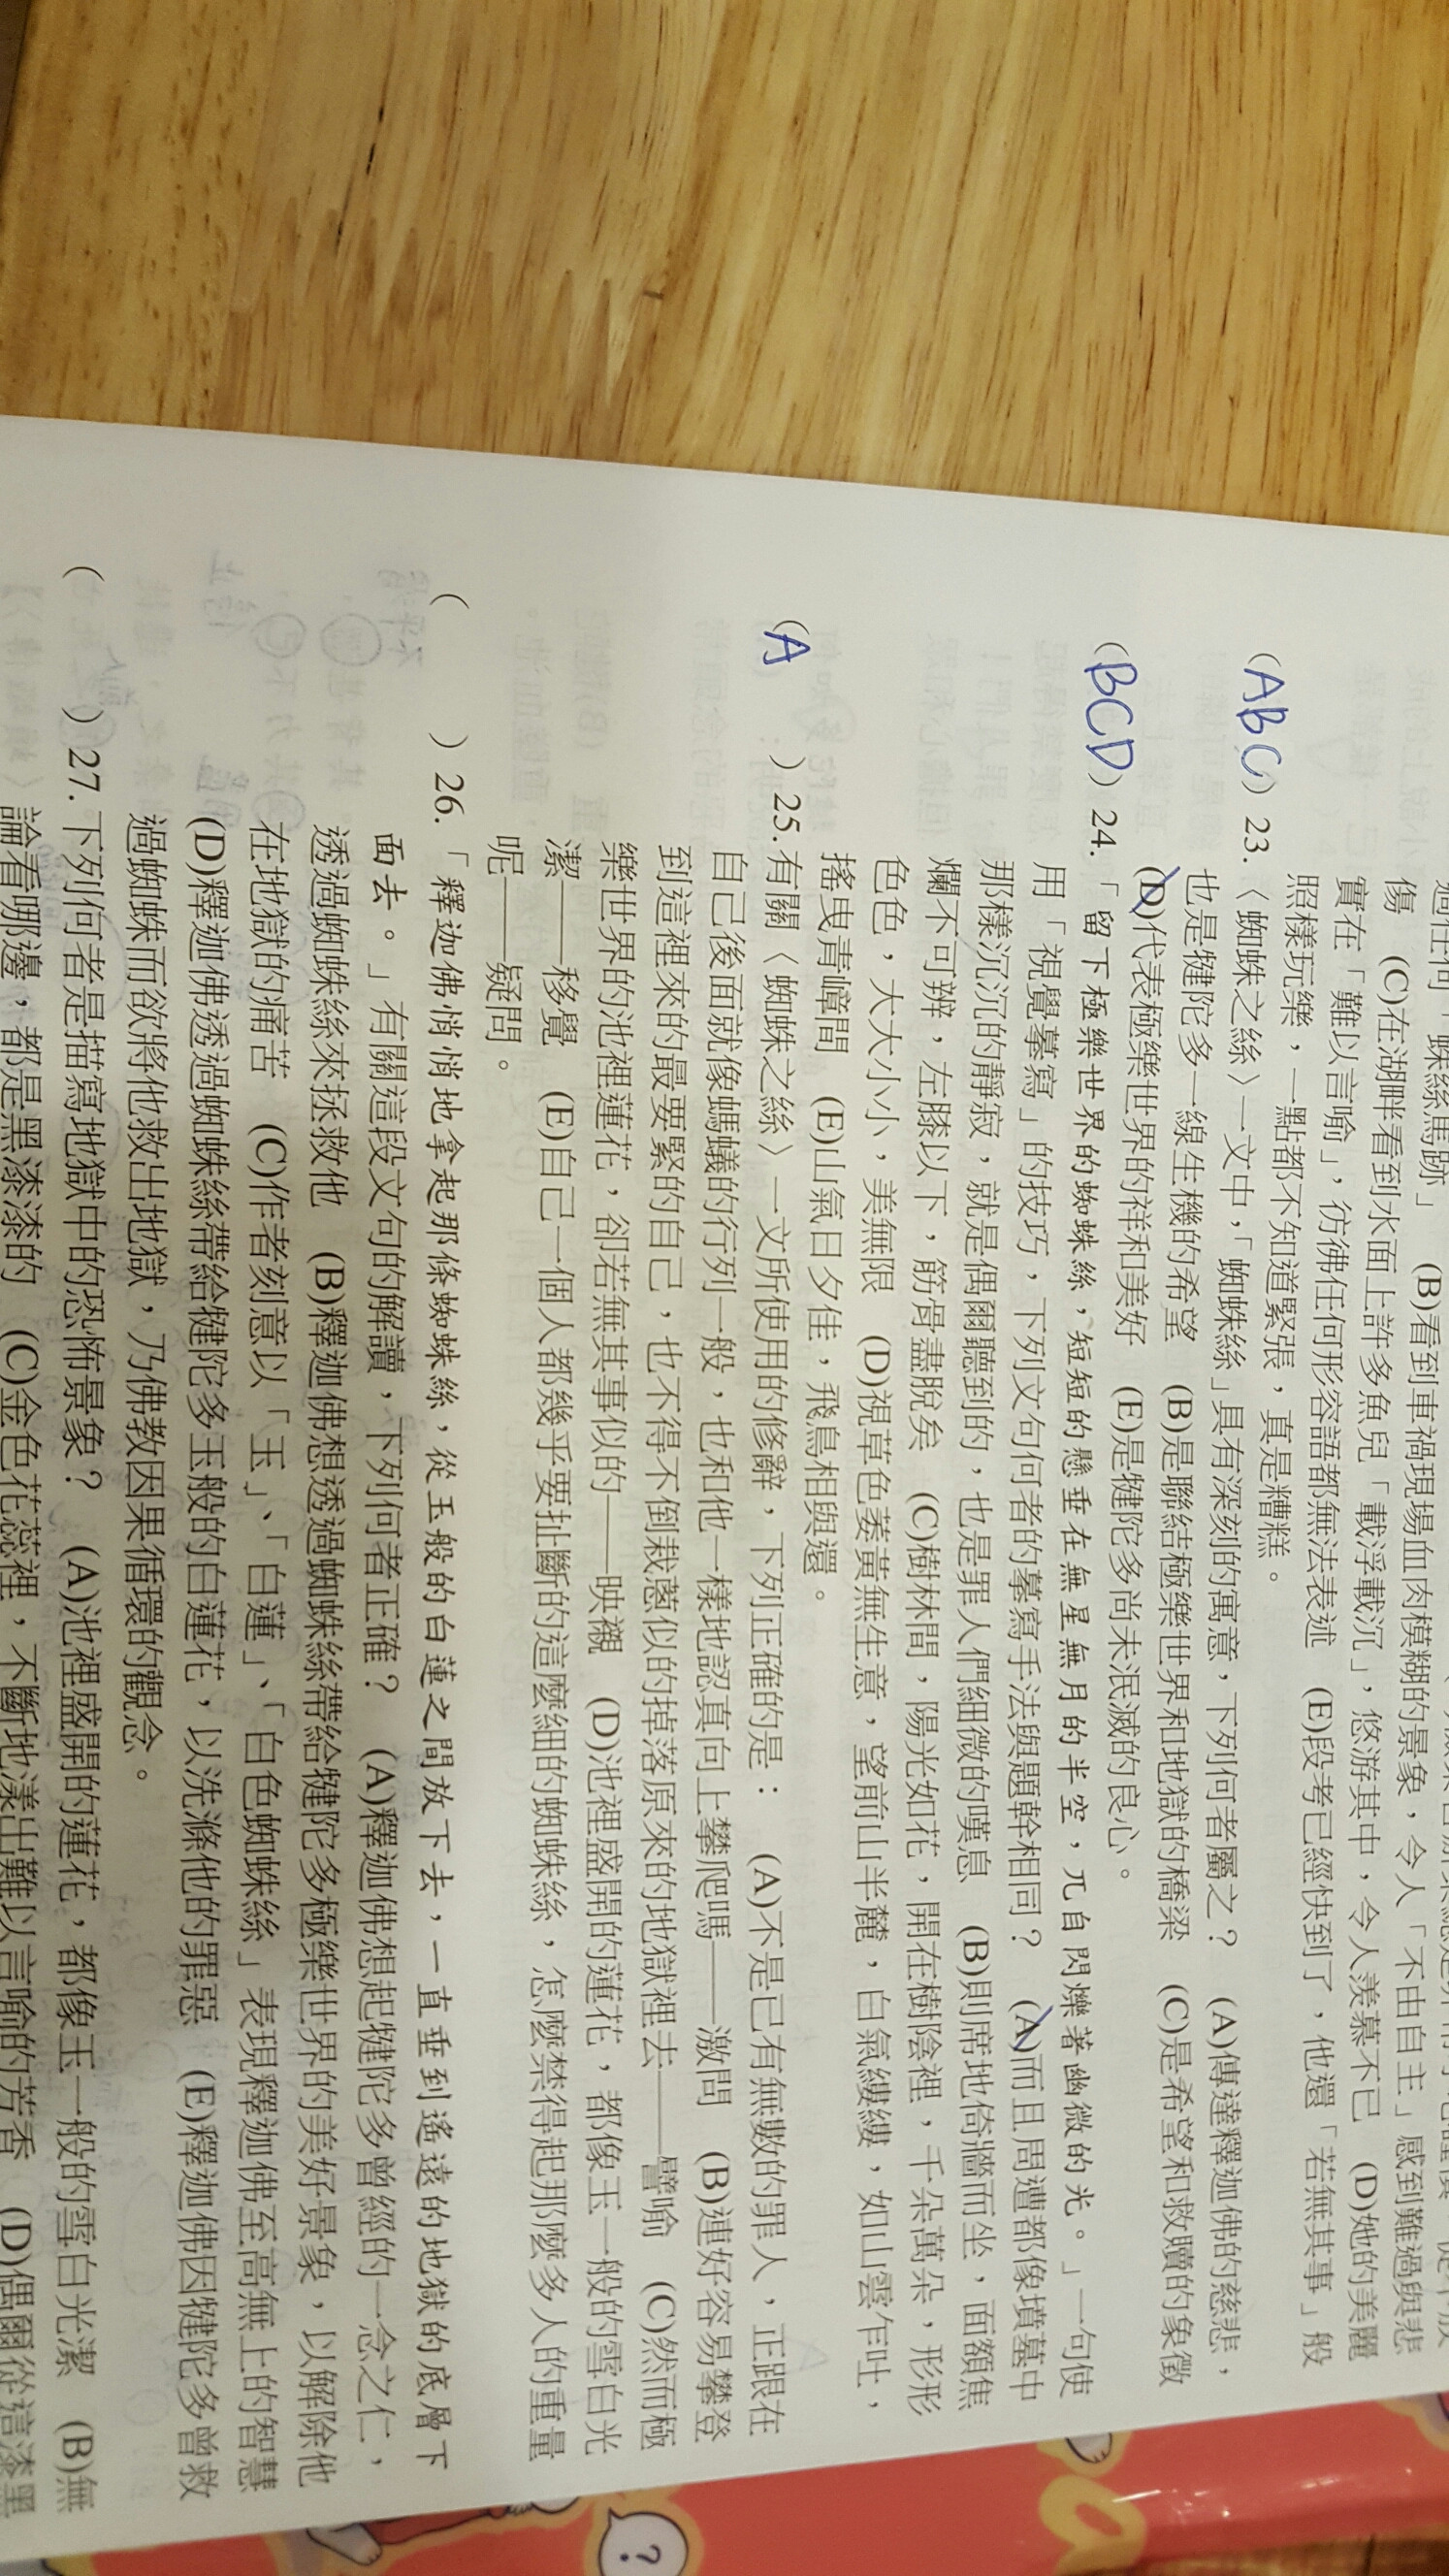 過任何「蛛絲馬跡」 (B)看到車禍現場血肉模糊的景象,令人「不由自主」感到難過與悲
傷 (C)在湖畔看到水面上許多魚兒「載浮載沉」,悠游其中,令人羨慕不已 (D)她的美麗
實在「難以言喻」,彷彿任何形容語都無法表述 (E)段考已經快到了,他還「若無其事」般
照樣玩樂,一點都不知道緊張,真是糟糕。
(ABC) 23.〈蜘蛛之絲〉一文中,「蜘蛛絲」具有深刻的寓意,下列何者屬之? (A)傳達釋迦佛的慈悲,
也是犍陀多一線生機的希望 (B)是聯結極樂世界和地獄的橋梁 (C)是希望和救贖的象徵
(D)代表極樂世界的祥和美好 (E)是犍陀多尚未泯滅的良心。
(BCD) 24.「留下極樂世界的蜘蛛絲,短短的懸垂在無星無月的半空,兀自閃爍著幽微的光。」一句使
用「視覺摹寫」的技巧,下列文句何者的摹寫手法與題幹相同? (A)而且周遭都像墳墓中
那樣沉沉的靜寂,就是偶爾聽到的,也是罪人們細微的嘆息 (B)則席地倚牆而坐,面額焦
爛不可辨,左膝以下,筋骨盡脫矣 (C)樹林間,陽光如花,開在樹陰裡,千朵萬朵,形形
色色,大大小小,美無限 (D)視草色萎黃無生意,望前山半麓,白氣縷縷,如山雲乍吐,
搖曳青嶂間 (E)山氣日夕佳,飛鳥相與還。
(A ) 25.有關〈蜘蛛之絲〉一文所使用的修辭,下列正確的是: (A)不是已有無數的罪人,正跟在
自己後面就像螞蟻的行列一般,也和他一樣地認真向上攀爬嗎——激問 (B)連好容易攀登
到這裡來的最要緊的自己,也不得不倒栽蔥似的掉落原來的地獄裡去——譬喻 (C)然而極
樂世界的池裡蓮花,卻若無其事似的——映襯 (D)池裡盛開的蓮花,都像玉一般的雪白光
潔——移覺 (E)自己一個人都幾乎要扯斷的這麼細的蜘蛛絲,怎麼禁得起那麼多人的重量
呢——疑問。
( ) 26.「釋迦佛悄悄地拿起那條蜘蛛絲,從玉般的白蓮之間放下去,一直垂到遙遠的地獄的底層下
面去。」有關這段文句的解讀,下列何者正確? (A)釋迦佛想起犍陀多曾經的一念之仁,
透過蜘蛛絲來拯救他 (B)釋迦佛想透過蜘蛛絲帶給犍陀多極樂世界的美好景象,以解除他
在地獄的痛苦 (C)作者刻意以「玉」、「白蓮」、「白色蜘蛛絲」表現釋迦佛至高無上的智慧
(D)釋迦佛透過蜘蛛絲帶給犍陀多玉般的白蓮花,以洗滌他的罪惡 (E)釋迦佛因犍陀多曾救
過蜘蛛而欲將他救出地獄,乃佛教因果循環的觀念。
( ) 27.下列何者是描寫地獄中的恐怖景象? (A)池裡盛開的蓮花,都像玉一般的雪白光潔 (B)無
論看哪邊,都是黑漆漆的 (C)金色花蕊裡,不斷地漾出難以言喻的芳香 (D)偶爾從這漆黑
?